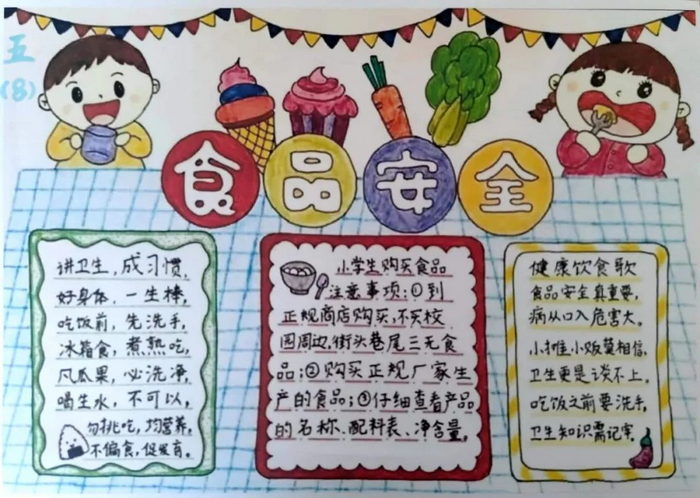 五
(8)
食品安全
讲卫生，成习惯，
好身体，一生棒，
吃饭前，先洗手，
冰箱食，煮熟吃，
凡瓜果，必洗净，
喝生水，不可以，
勿挑吃，均营养，
不偏食，促发育。
小学生购买食品
注意事项：①到
正规商店购买，不买校
园周边、街头巷尾三无食
品；②购买正规厂家生
产的食品；③仔细查看产品
的名称、配料表、净含量，
健康饮食歌
食品安全真重要，
病从口入危害大。
小摊小贩莫相信，
卫生更是谈不上。
吃饭之前要洗手，
卫生知识需记牢。